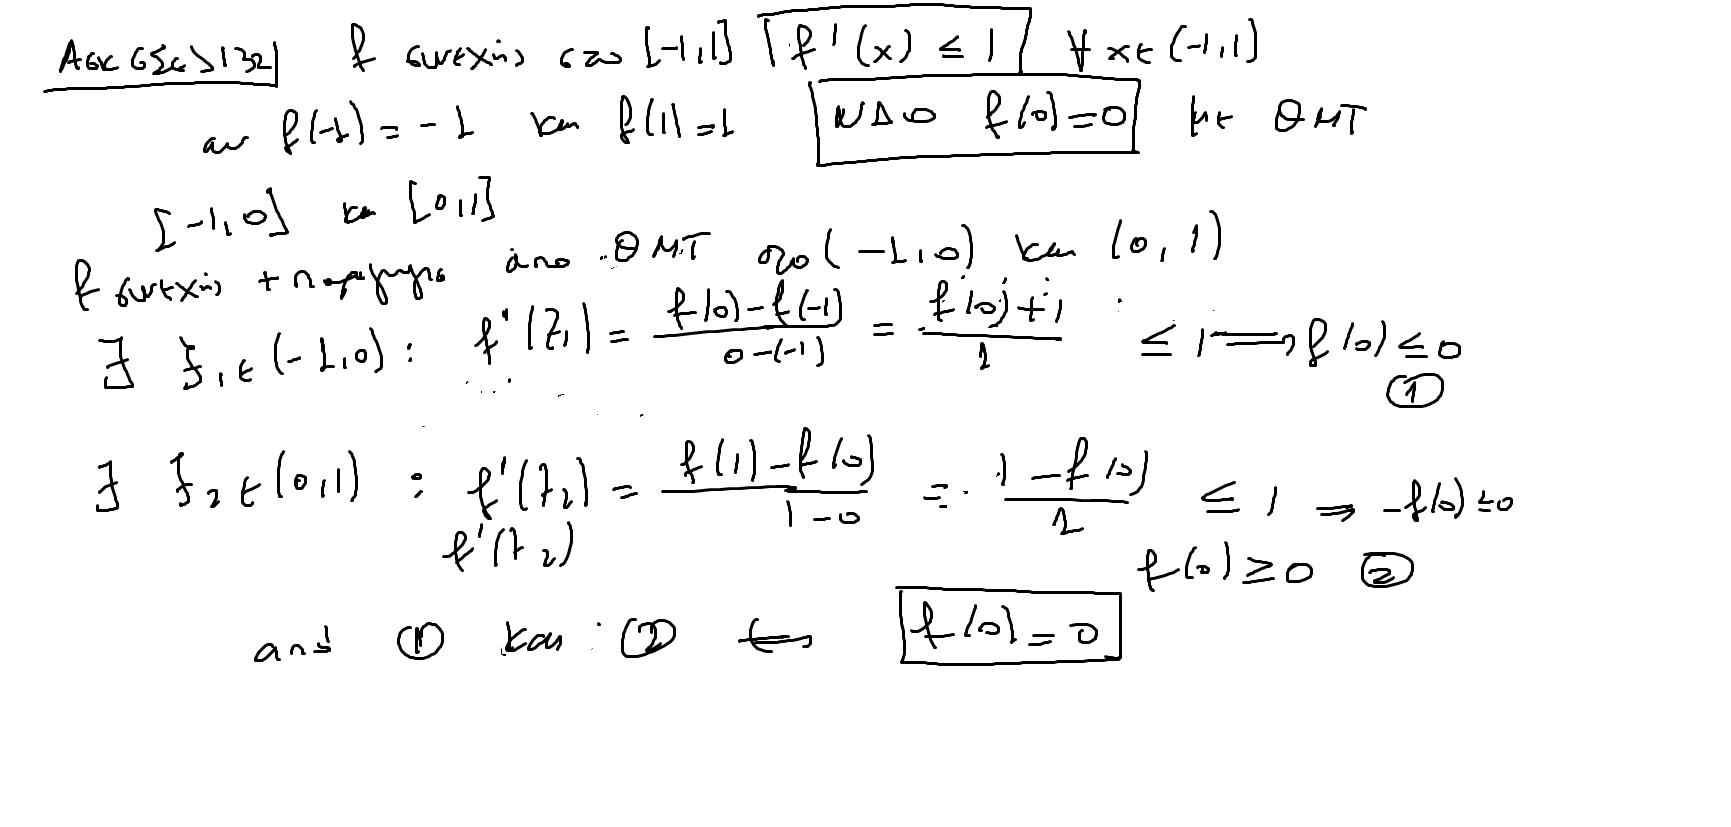 Ασκ 6 σελ 132 f συνεχής στο [-1,1] f'(x) ≤ 1 ∀ x ∈ (-1,1)
αν f(-1) = -1 και f(1) = 1 ΝΔΟ f(0)=0 με ΘΜΤ
[-1,0] και [0,1]
f συνεχής + παραγωγισ απο ΘΜΤ στο (-1,0) και (0,1)
∃ ξ₁ ∈ (-1,0) : f'(ξ₁) = \frac{f(0)-f(-1)}{0-(-1)} = \frac{f(0)+1}{1} ≤ 1 ⟹ f(0) ≤ 0
①
∃ ξ₂ ∈ (0,1) : f'(ξ₂) = \frac{f(1)-f(0)}{1-0} = \frac{1-f(0)}{1} ≤ 1 ⇒ -f(0) ≤ 0
f'(ξ₂)
f(0) ≥ 0 ②
από ① και ② ⟺ f(0) = 0